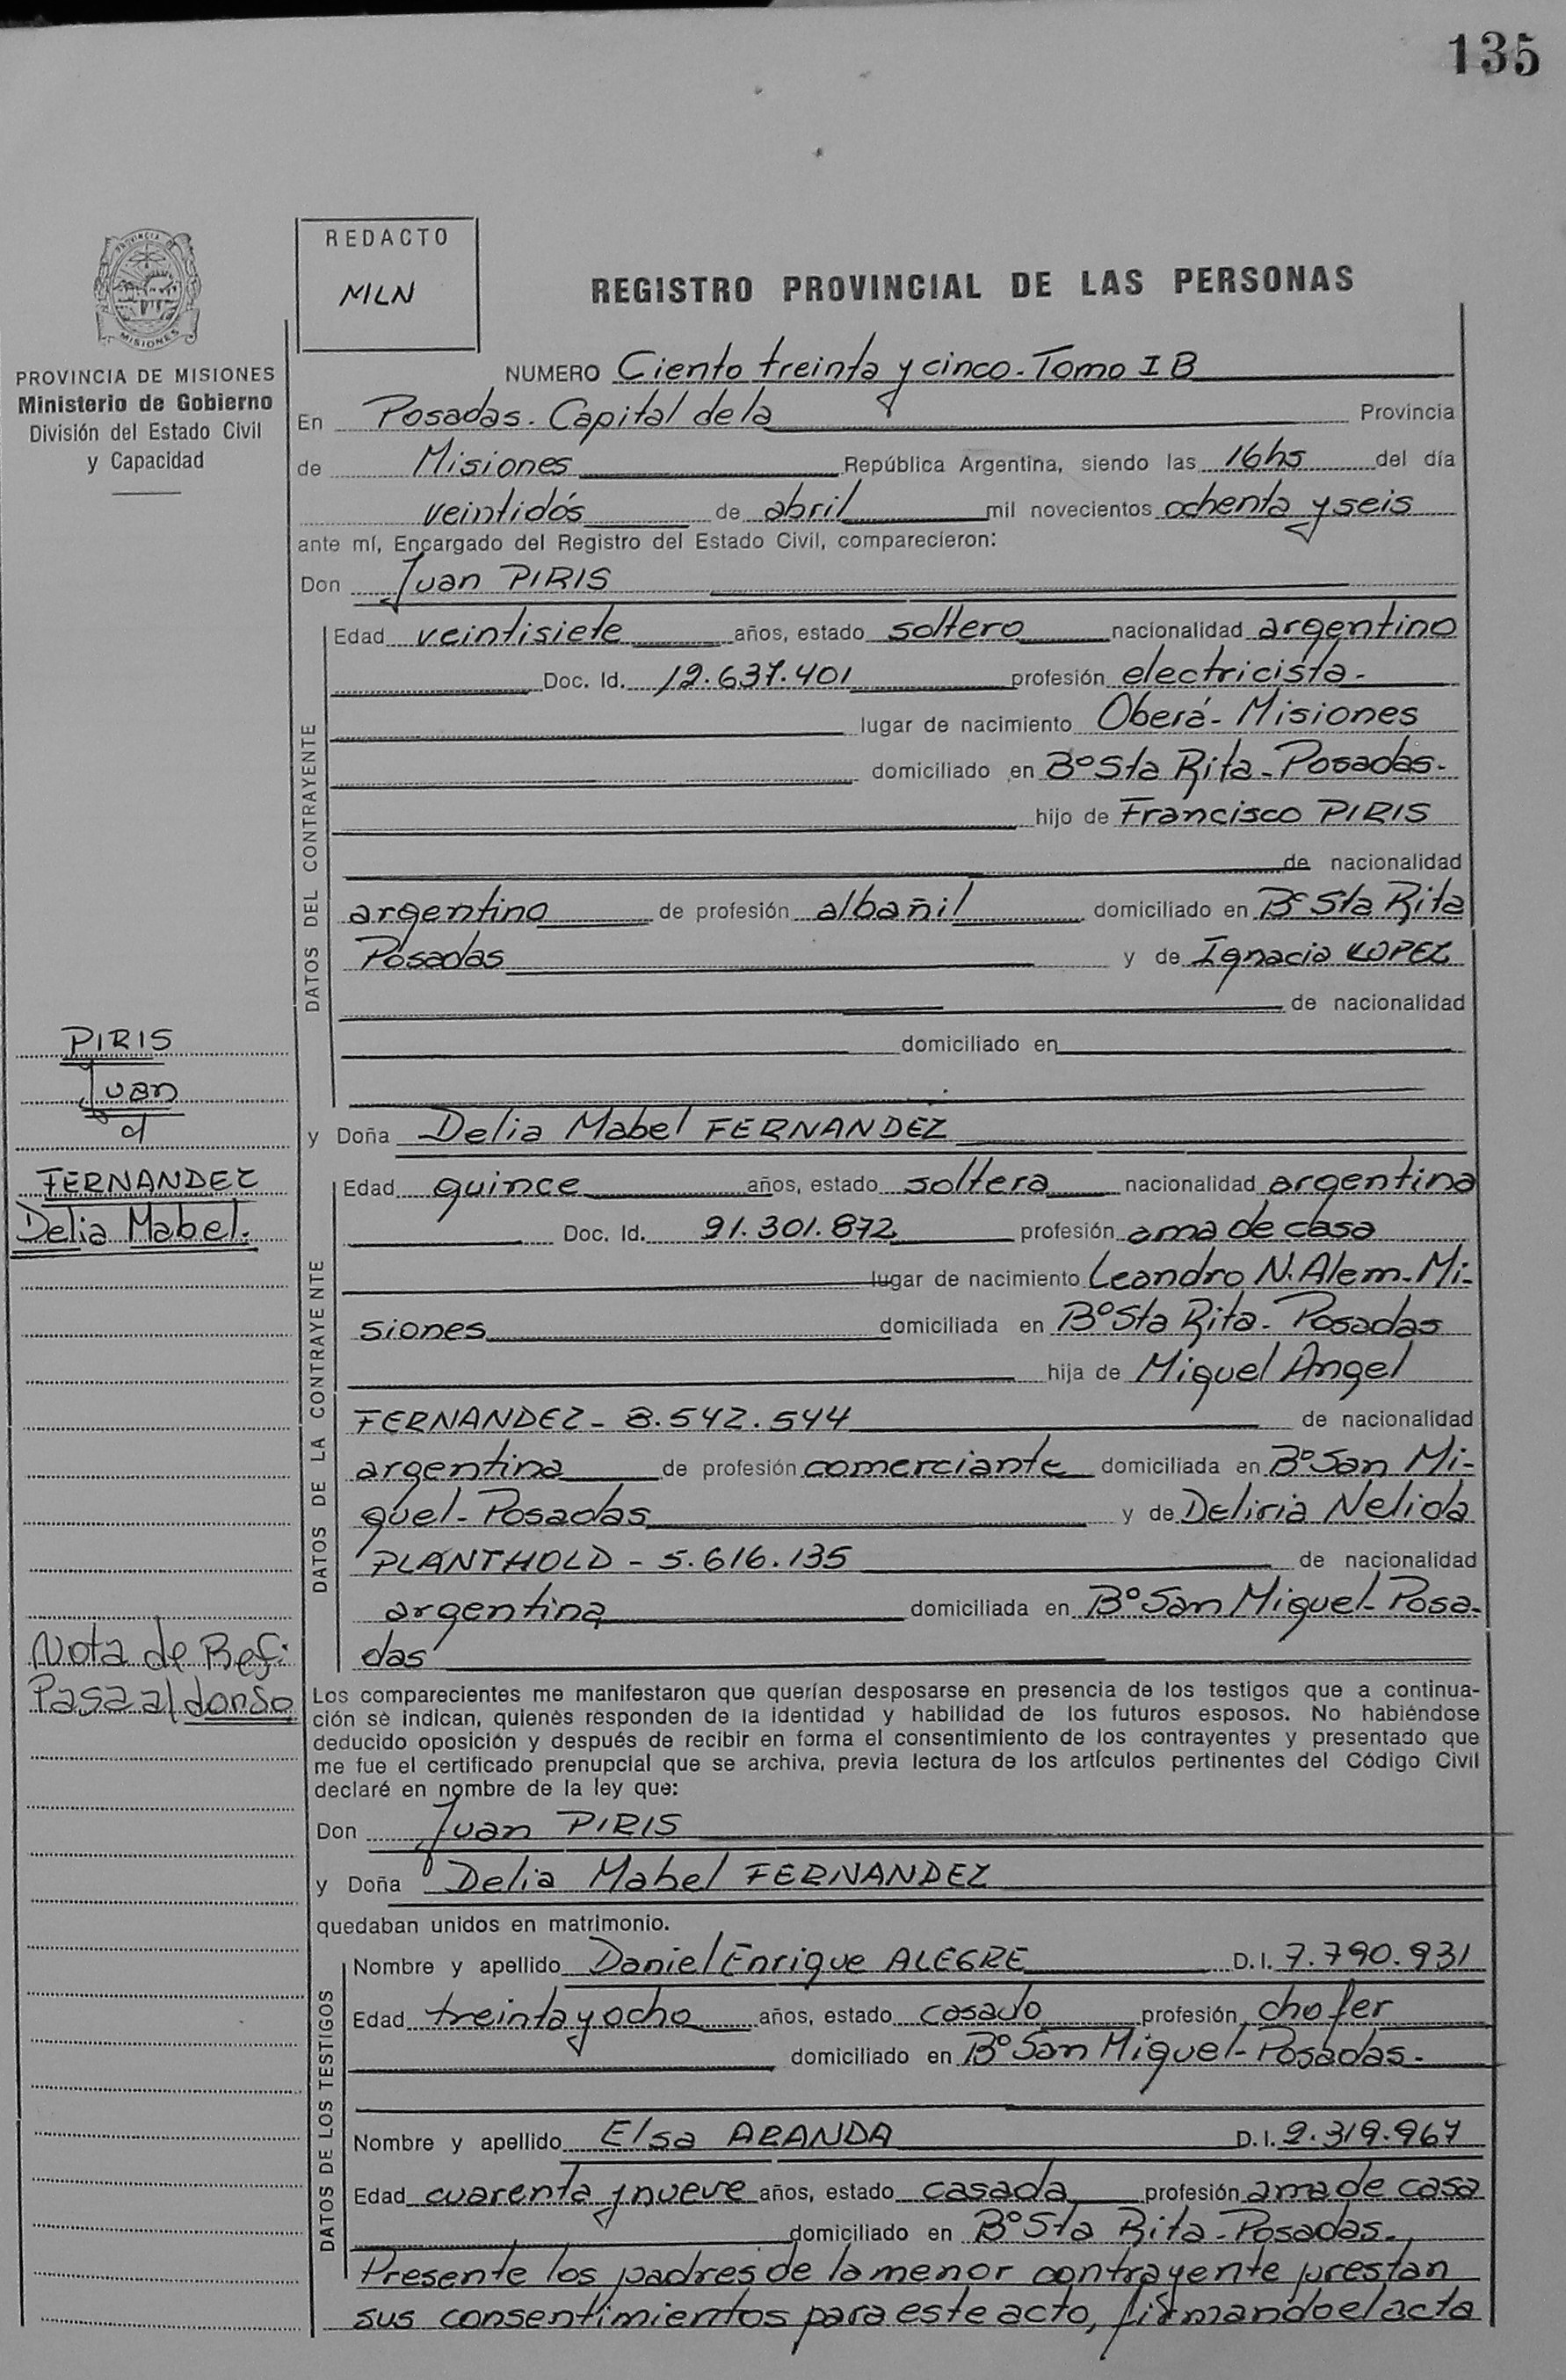 135
REDACTO
MLN
REGISTRO PROVINCIAL DE LAS PERSONAS
PROVINCIA DE
MISIONES
PROVINCIA DE MISIONES
Ministerio de Gobierno
División del Estado Civil
y Capacidad
NUMERO Ciento treinta y cinco - Tomo I B
En Posadas. Capital de la Provincia
de Misiones República Argentina, siendo las 16hs del día
veintidós de abril mil novecientos ochenta y seis
ante mí, Encargado del Registro del Estado Civil, comparecieron:
Don Juan PIRIS
DATOS DEL CONTRAYENTE
Edad veintisiete años, estado soltero nacionalidad argentino
Doc. Id. 12.637.401 profesión electricista.-
lugar de nacimiento Oberá - Misiones
domiciliado en Bº Sta Rita - Posadas.-
hijo de Francisco PIRIS
de nacionalidad
argentino de profesión albañil domiciliado en Bº Sta Rita
Posadas y de Ignacia LOPEZ
de nacionalidad
domiciliado en
PIRIS
Juan
c/
FERNANDEZ
Delia Mabel.
y Doña Delia Mabel FERNANDEZ
DATOS DE LA CONTRAYENTE
Edad quince años, estado soltera nacionalidad argentina
Doc. Id. 91.301.872 profesión ama de casa
lugar de nacimiento Leandro N. Alem - Mi-
siones domiciliada en Bº Sta Rita - Posadas
hija de Miguel Angel
FERNANDEZ - 8.542.544 de nacionalidad
argentina de profesión comerciante domiciliada en Bº San Mi-
guel - Posadas y de Deliria Nelida
PLANTHOLD - 5.616.135 de nacionalidad
argentina domiciliada en Bº San Miguel - Posa-
das
Nota de Ref:
Pasa al dorso
Los comparecientes me manifestaron que querían desposarse en presencia de los testigos que a continua-
ción se indican, quienes responden de la identidad y habilidad de los futuros esposos. No habiéndose
deducido oposición y después de recibir en forma el consentimiento de los contrayentes y presentado que
me fue el certificado prenupcial que se archiva, previa lectura de los artículos pertinentes del Código Civil
declaré en nombre de la ley que:
Don Juan PIRIS
y Doña Delia Mabel FERNANDEZ
quedaban unidos en matrimonio.
DATOS DE LOS TESTIGOS
Nombre y apellido Daniel Enrique ALEGRE D.I. 7.790.931
Edad treinta y ocho años, estado casado profesión chofer
domiciliado en Bº San Miguel - Posadas.-
Nombre y apellido Elsa ARANDA D.I. 2.319.967
Edad cuarenta y nueve años, estado casada profesión ama de casa
domiciliado en Bº Sta Rita - Posadas.-
Presente los padres de la menor contrayente prestan
sus consentimientos para este acto, firmando el acta